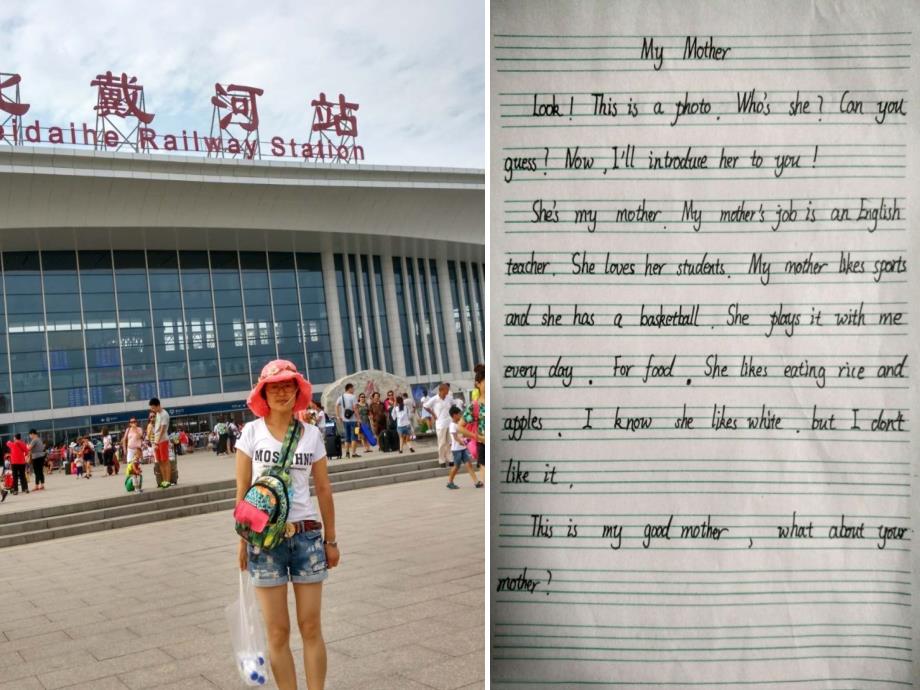 戴河站
eidaihe Railway Station
MOSCHINO
My Mother
Look! This is a photo. Who's she? Can you
guess? Now, I'll introduce her to you!
She's my mother. My mother's job is an English
teacher. She loves her students. My mother likes sports
and she has a basketball. She plays it with me
every day. For food. She likes eating rice and
apples. I know she likes white. but I don't
like it.
This is my good mother, what about your
mother?